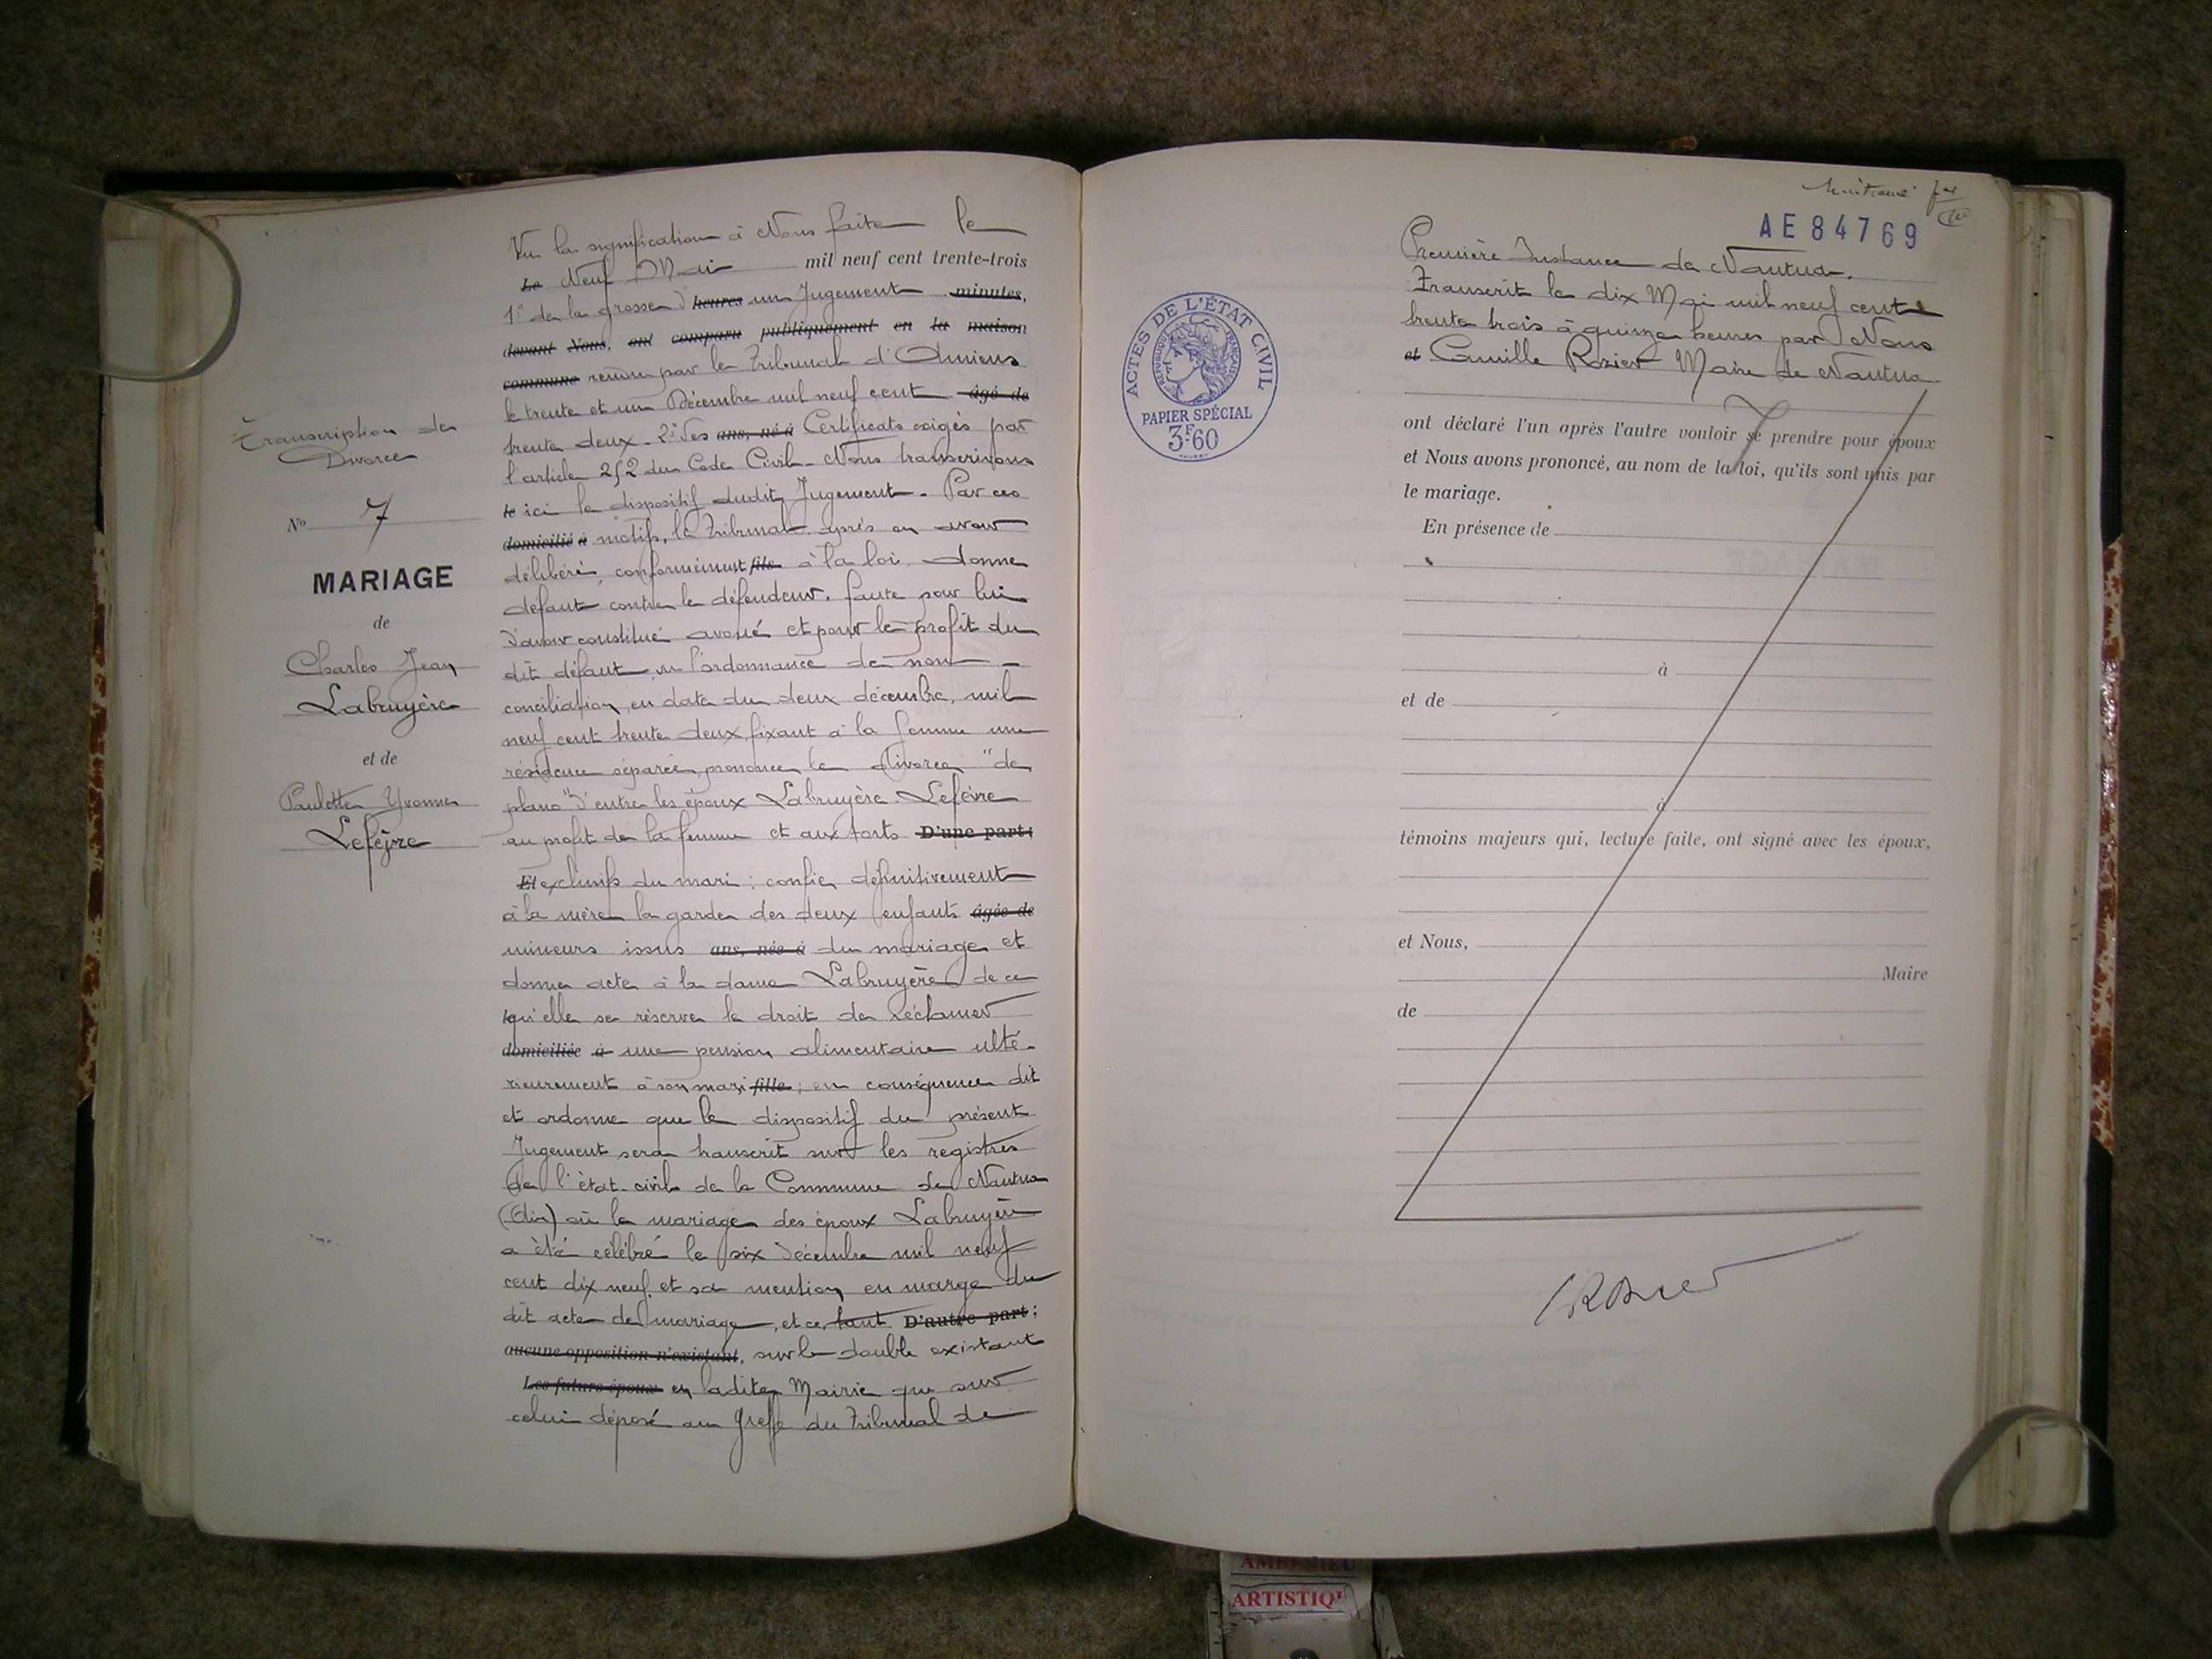 Transcription de
Divorce
N° 7
MARIAGE
de
Charles Jean
Labruyère
et de
Paulette Yvonne
Lefèvre
Vu la signification à Nous faite le
Le Neuf Mai mil neuf cent trente-trois
1° de la grosse d'heures un Jugement minutes,
devant Nous, ont comparu publiquement en la maison
commune rendu par le Tribunal d'Amiens
le trente et un Décembre mil neuf cent âgé de
trente deux. 2° des ans, né à Certificats exigés par
l'article 252 du Code Civil. Nous transcrivons
le ici le dispositif dudit Jugement. Par ces
domicilié à motifs, le Tribunal après en avoir
délibéré, conformément fils à la loi, donne
défaut contre le défendeur, faute pour lui
d'avoir constitué avoué et pour le profit du
dit défaut, vu l'ordonnance de non
conciliation, en date du deux décembre, mil
neuf cent trente deux, fixant à la femme une
résidence séparée, prononce le divorce "de
plano" d'entre les époux Labruyère Lefèvre
au profit de la femme et aux torts D'une part;
Et exclusifs du mari: confie définitivement
à la mère la garde des deux enfants âgée de
mineurs issus ans, née à du mariage et
donne acte à la dame Labruyère de ce
qu'elle se réserve le droit de réclamer
domiciliée à une pension alimentaire ulté-
rieurement à son mari fille; en conséquence dit
et ordonne que le dispositif du présent
Jugement sera transcrit sur les registres
de l'état-civil de la Commune de Nantua
(Ain) où le mariage des époux Labruyère
a été célébré le six décembre mil neuf
cent dix neuf, et sa mention en marge du
dit acte de mariage, et ce, tant D'autre part;
aucune opposition n'existant, sur le double existant
Les futurs époux en ladite Mairie que sur
celui déposé au Greffe du Tribunal de
AE84769
Première Instance de Nantua.
Transcrit le dix Mai mil neuf cent
trente trois à quinze heures par Nous
et Camille Rozier Maire de Nantua
ACTES DE L'ÉTAT CIVIL
RÉPUBLIQUE FRANÇAISE
PAPIER SPÉCIAL
3F.60
ont déclaré l'un après l'autre vouloir se prendre pour époux
et Nous avons prononcé, au nom de la loi, qu'ils sont unis par
le mariage.
En présence de
à
et de
à
témoins majeurs qui, lecture faite, ont signé avec les époux,
et Nous,
Maire
de
CRozier
ARTISTIQU